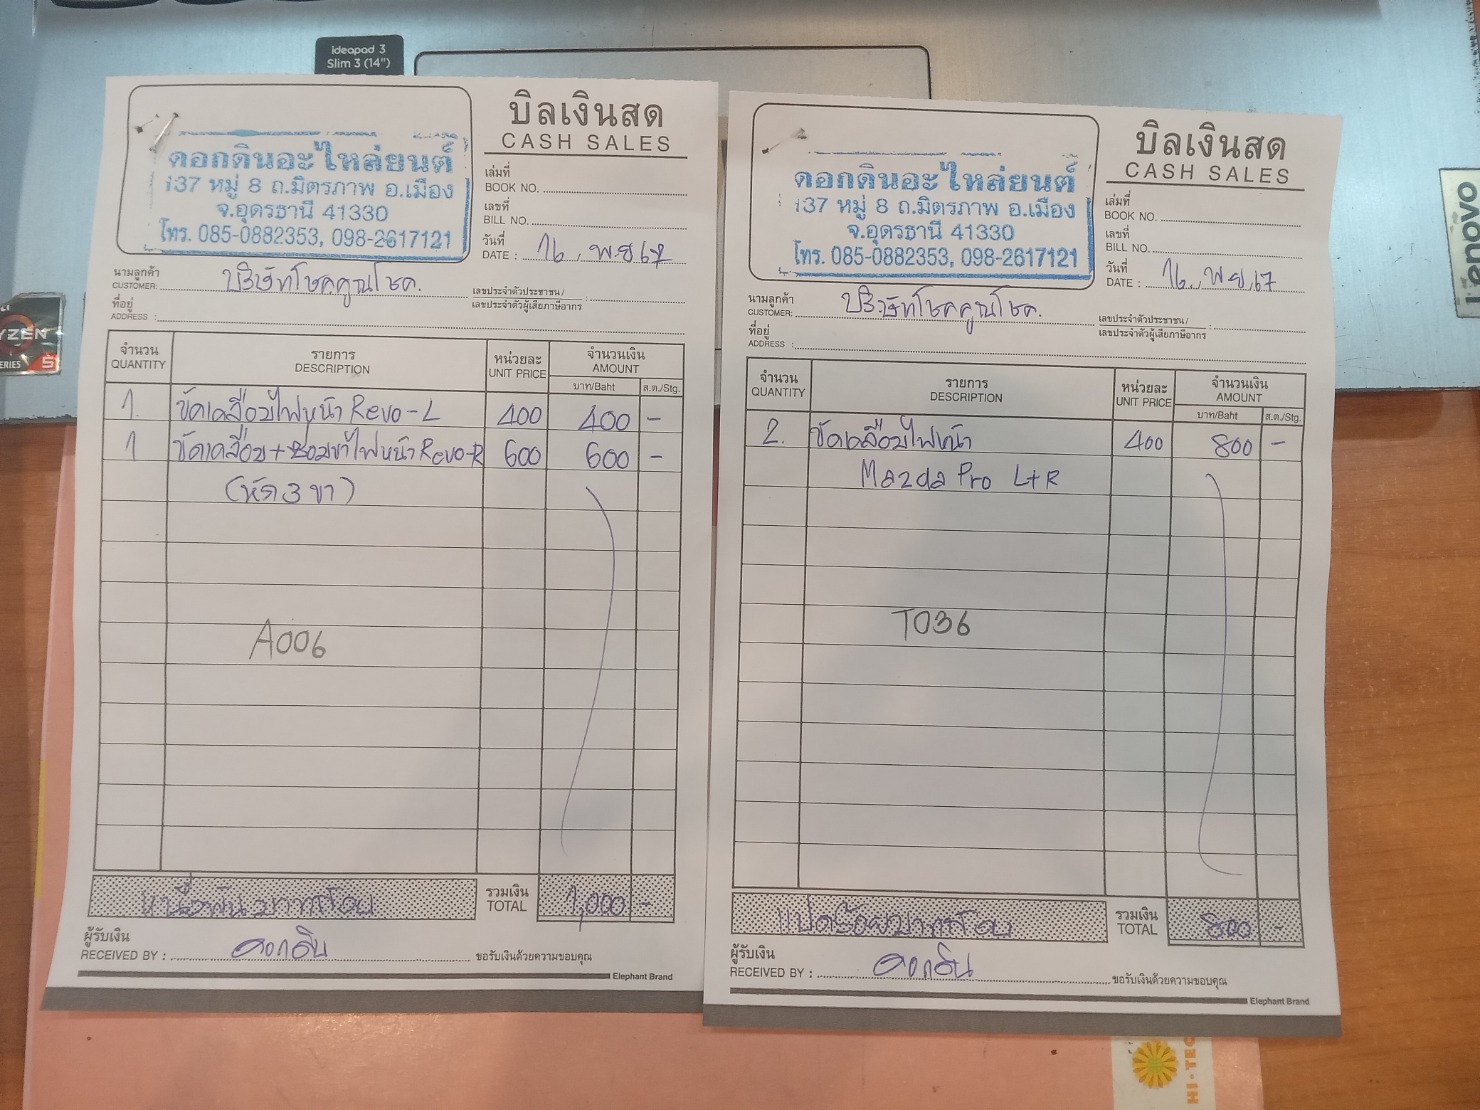 ideapad 3
Slim 3 (14")
Lenovo
RYZEN
SERIES 5
บิลเงินสด
CASH SALES
ดอกดินอะไหล่ยนต์
137 หมู่ 8 ถ.มิตรภาพ อ.เมือง
จ.อุดรธานี 41330
โทร. 085-0882353, 098-2617121
เล่มที่
BOOK NO.
เลขที่
BILL NO.
วันที่
DATE : 16 พ.ย 67
นามลูกค้า
CUSTOMER: บริษัทโชคคูณโชค.
เลขประจำตัวประชาชน/
เลขประจำตัวผู้เสียภาษีอากร :
ที่อยู่
ADDRESS :
จำนวน รายการ หน่วยละ จำนวนเงิน
QUANTITY DESCRIPTION UNIT PRICE AMOUNT
บาท/Baht ส.ต./Stg.
1. ขัดเคลือบไฟหน้า Revo-L 400 400 -
1 ขัดเคลือบ+ซ่อมขาไฟหน้า Revo-R 600 600 -
(หัก 3 ขา)
A006
หนึ่งพันบาทถ้วน รวมเงิน 1,000 -
TOTAL
ผู้รับเงิน
RECEIVED BY : ดอกดิน ขอรับเงินด้วยความขอบคุณ
Elephant Brand
บิลเงินสด
CASH SALES
ดอกดินอะไหล่ยนต์
137 หมู่ 8 ถ.มิตรภาพ อ.เมือง
จ.อุดรธานี 41330
โทร. 085-0882353, 098-2617121
เล่มที่
BOOK NO.
เลขที่
BILL NO.
วันที่
DATE : 16 พ.ย. 67
นามลูกค้า
CUSTOMER: บริษัทโชคคูณโชค.
เลขประจำตัวประชาชน/
เลขประจำตัวผู้เสียภาษีอากร :
ที่อยู่
ADDRESS :
จำนวน รายการ หน่วยละ จำนวนเงิน
QUANTITY DESCRIPTION UNIT PRICE AMOUNT
บาท/Baht ส.ต./Stg.
2. ขัดเคลือบไฟหน้า 400 800 -
Mazda Pro L+R
T036
แปดร้อยบาทถ้วน รวมเงิน 800 -
TOTAL
ผู้รับเงิน
RECEIVED BY : ดอกดิน ขอรับเงินด้วยความขอบคุณ
Elephant Brand